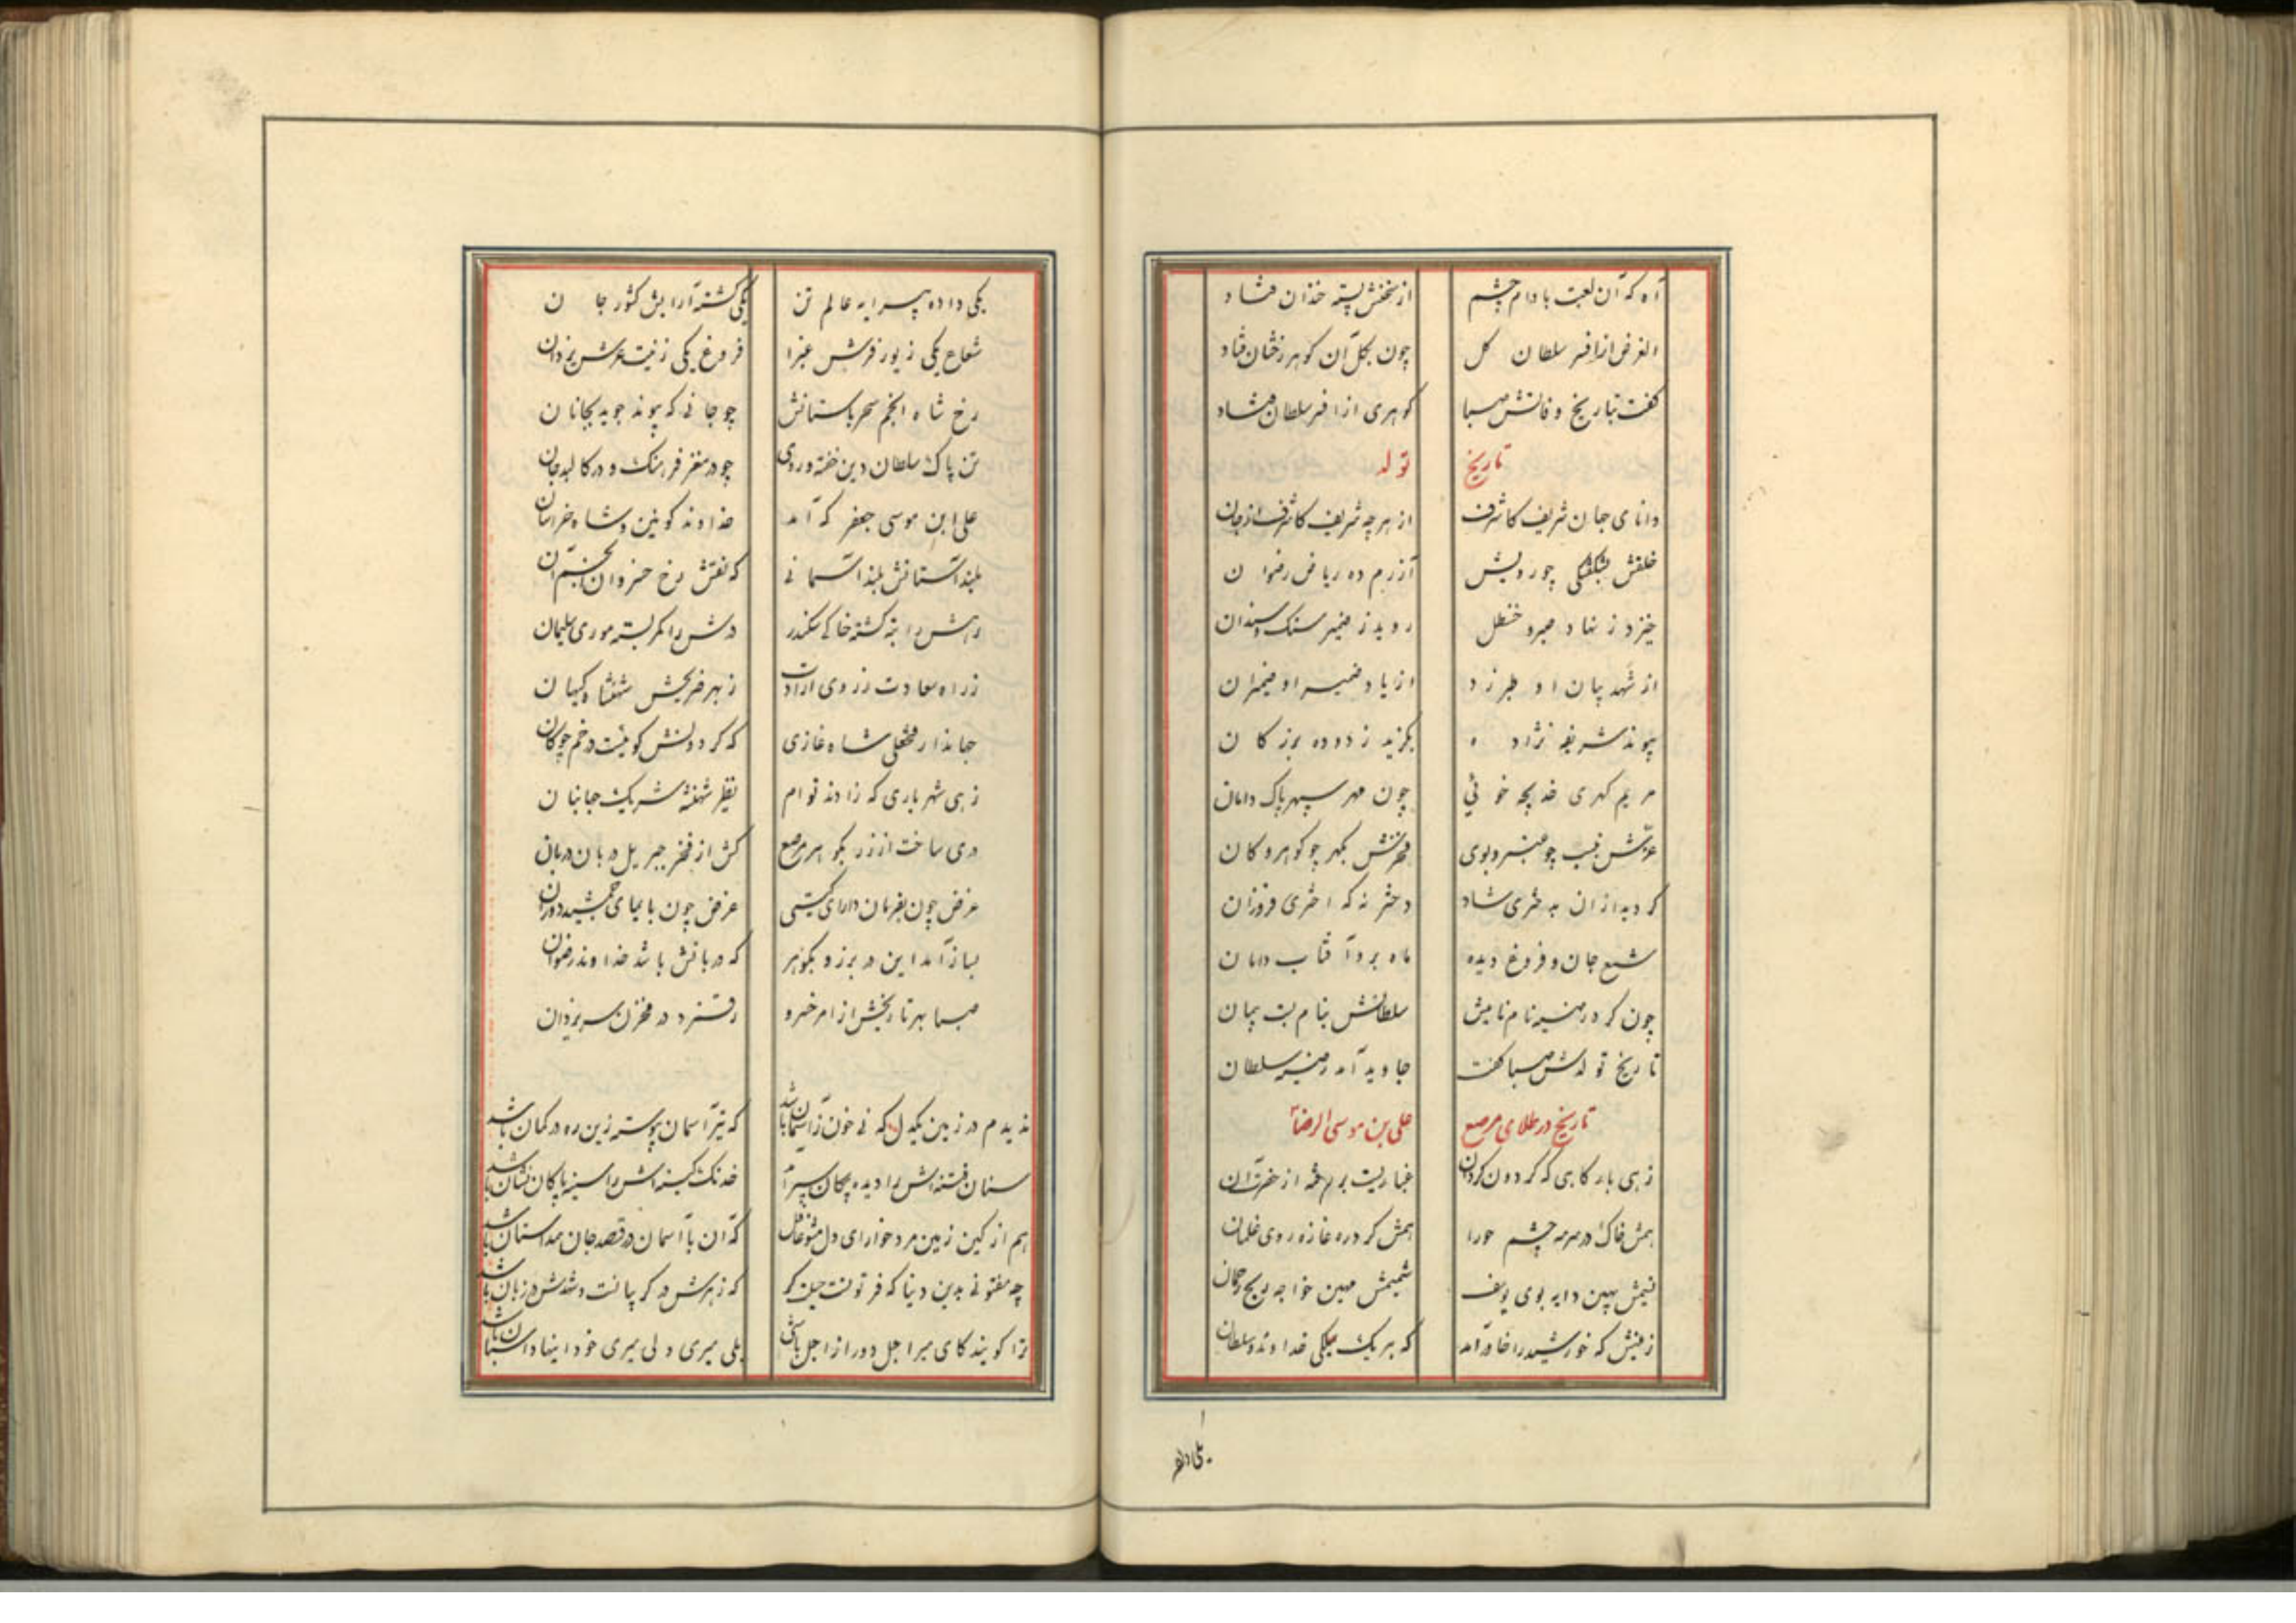 آه که آن لعبت بادام چشم از سخنش پسته خندان فشاد
الغرض از افسر سلطان کل چون بکل آن کوهر رخشان فتاد
کفت بتاریخ وفاتش صبا کوهری از افسر سلطان فتاد
تاریخ تولد
دانای جهان شریف کاشرف از هر چه شریف کاشرف از جان
خلقش بشکفتکی چو رویش آزرم ده ریاض رضوان
خیزد ز نهاد صبر و حنظل روید ز ضمیر سنک و سندان
از شهد بیان او طبرزد از یاد ضمیر او ضیمران
پیوند شریفه نژاده بکزید ز دوده بزرکان
مریم کهری خدیجه خوئی چون مهر سپهر پاک دامان
عزتش بنسب چو عنبر و بوی فخرتش بکهر چو کوهر و کان
کردید از آن به دختری شاد دختر نه که اختری فروزان
شمع جان و فروغ دیده ماه برد آفتاب دامان
چون کرد در منیر نام نامیش سلطانش بنام بست پیمان
تاریخ تولدش صبا کفت جاوید آمد منیر سلطان
تاریخ در طلای مرصع علی بن موسی الرضا
زهی بارکاهی که کردون کردان غباریست بر طرفه از حضرت آن
همش خاک در سرمه چشم حورا همش کرد ره غازه روی غلمان
نسیمش بهین دایه بوی یوسف شمیمش مهین خواجه ریح رحمان
زمینش که خورشید را خاور آمد که بر یک فلکی خداوند و سلطان
یکی داده
یکی داده پیرایه عالم تن یکی کشته آرایش کشور جان
شعاع یکی زیور فرش غبرا فروغ یکی زینت عرش یزدان
رخ شاه انجم سحر باستانش چو جانی که پیوند جوید بجانان
تن پاک سلطان دین خفته در وی چو در مغز فرهنک و در کالبد جان
علی ابن موسی جعفر که آمد خداوند کونین و شاه خراسان
بلند آستانش بلند آسمانی که نقش رخ خسروان انجم آن
رهش را بنه کشته خاکی سکندر درش را کمر بسته موری سلیمان
ز راه سعادت ز روی ارادت ز بهر ضریحش شهنشاه کیهان
جهاندار فتحعلی شاه غازی که کردونش کوئیست در خم چوکان
زهی شهریاری که زادند توام نظیر شهنشه شریک جهانبان
دری ساخت از زر بکوهر مرصع کش از فخر جبریل دربان دربان
غرض چون بفرمان دارای کیتی غرض چون بایمای جمشید دوران
بساز آمد این در بزر و بکوهر که دربانش باشد خداوند رضوان
صبا بهر تاریخش از امر خسرو رقم زد در مخزن سر یزدان
ندیدم در زمین یکدل که نی خون ز آسمان باشد که تیر آسمان پیوسته زین ره در کمان باشد
سنان فتنه‌اش را دیده پیکان خدنک کینه‌اش را سینه پاکان نشان باشد
هم از کین زمین مرد خوار ای دل مشو غافل که آن با آسمان در قصد جان همداستان باشد
چه مفتونی بدین دنیا که فرتوتست که زهرش در کریبانست و شهدش در زبان باشد
ترا کویند کای میر اجل دور از اجل باشی بلی میری ولی میری خود اینها داستان باشد